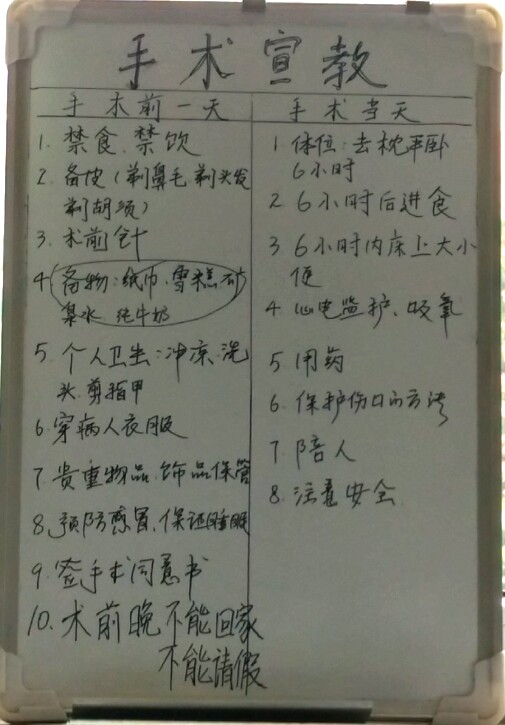 手术宣教
手术前一天
1. 禁食、禁饮
2. 备皮（剃鼻毛、剃头发
剃胡须）
3. 术前针
4 备物：纸巾、雪糕、矿
泉水 纯牛奶
5. 个人卫生：冲凉、洗
头、剪指甲
6. 穿病人衣服
7. 贵重物品、饰品保管
8. 预防感冒、保证睡眠
9. 签手术同意书
10. 术前晚不能回家
不能请假
手术当天
1 体位：去枕平卧
6小时
2 6小时后进食
3 6小时内床上大小
便
4 心电监护、吸氧
5 用药
6. 保护伤口的方法
7 陪人
8. 注意安全